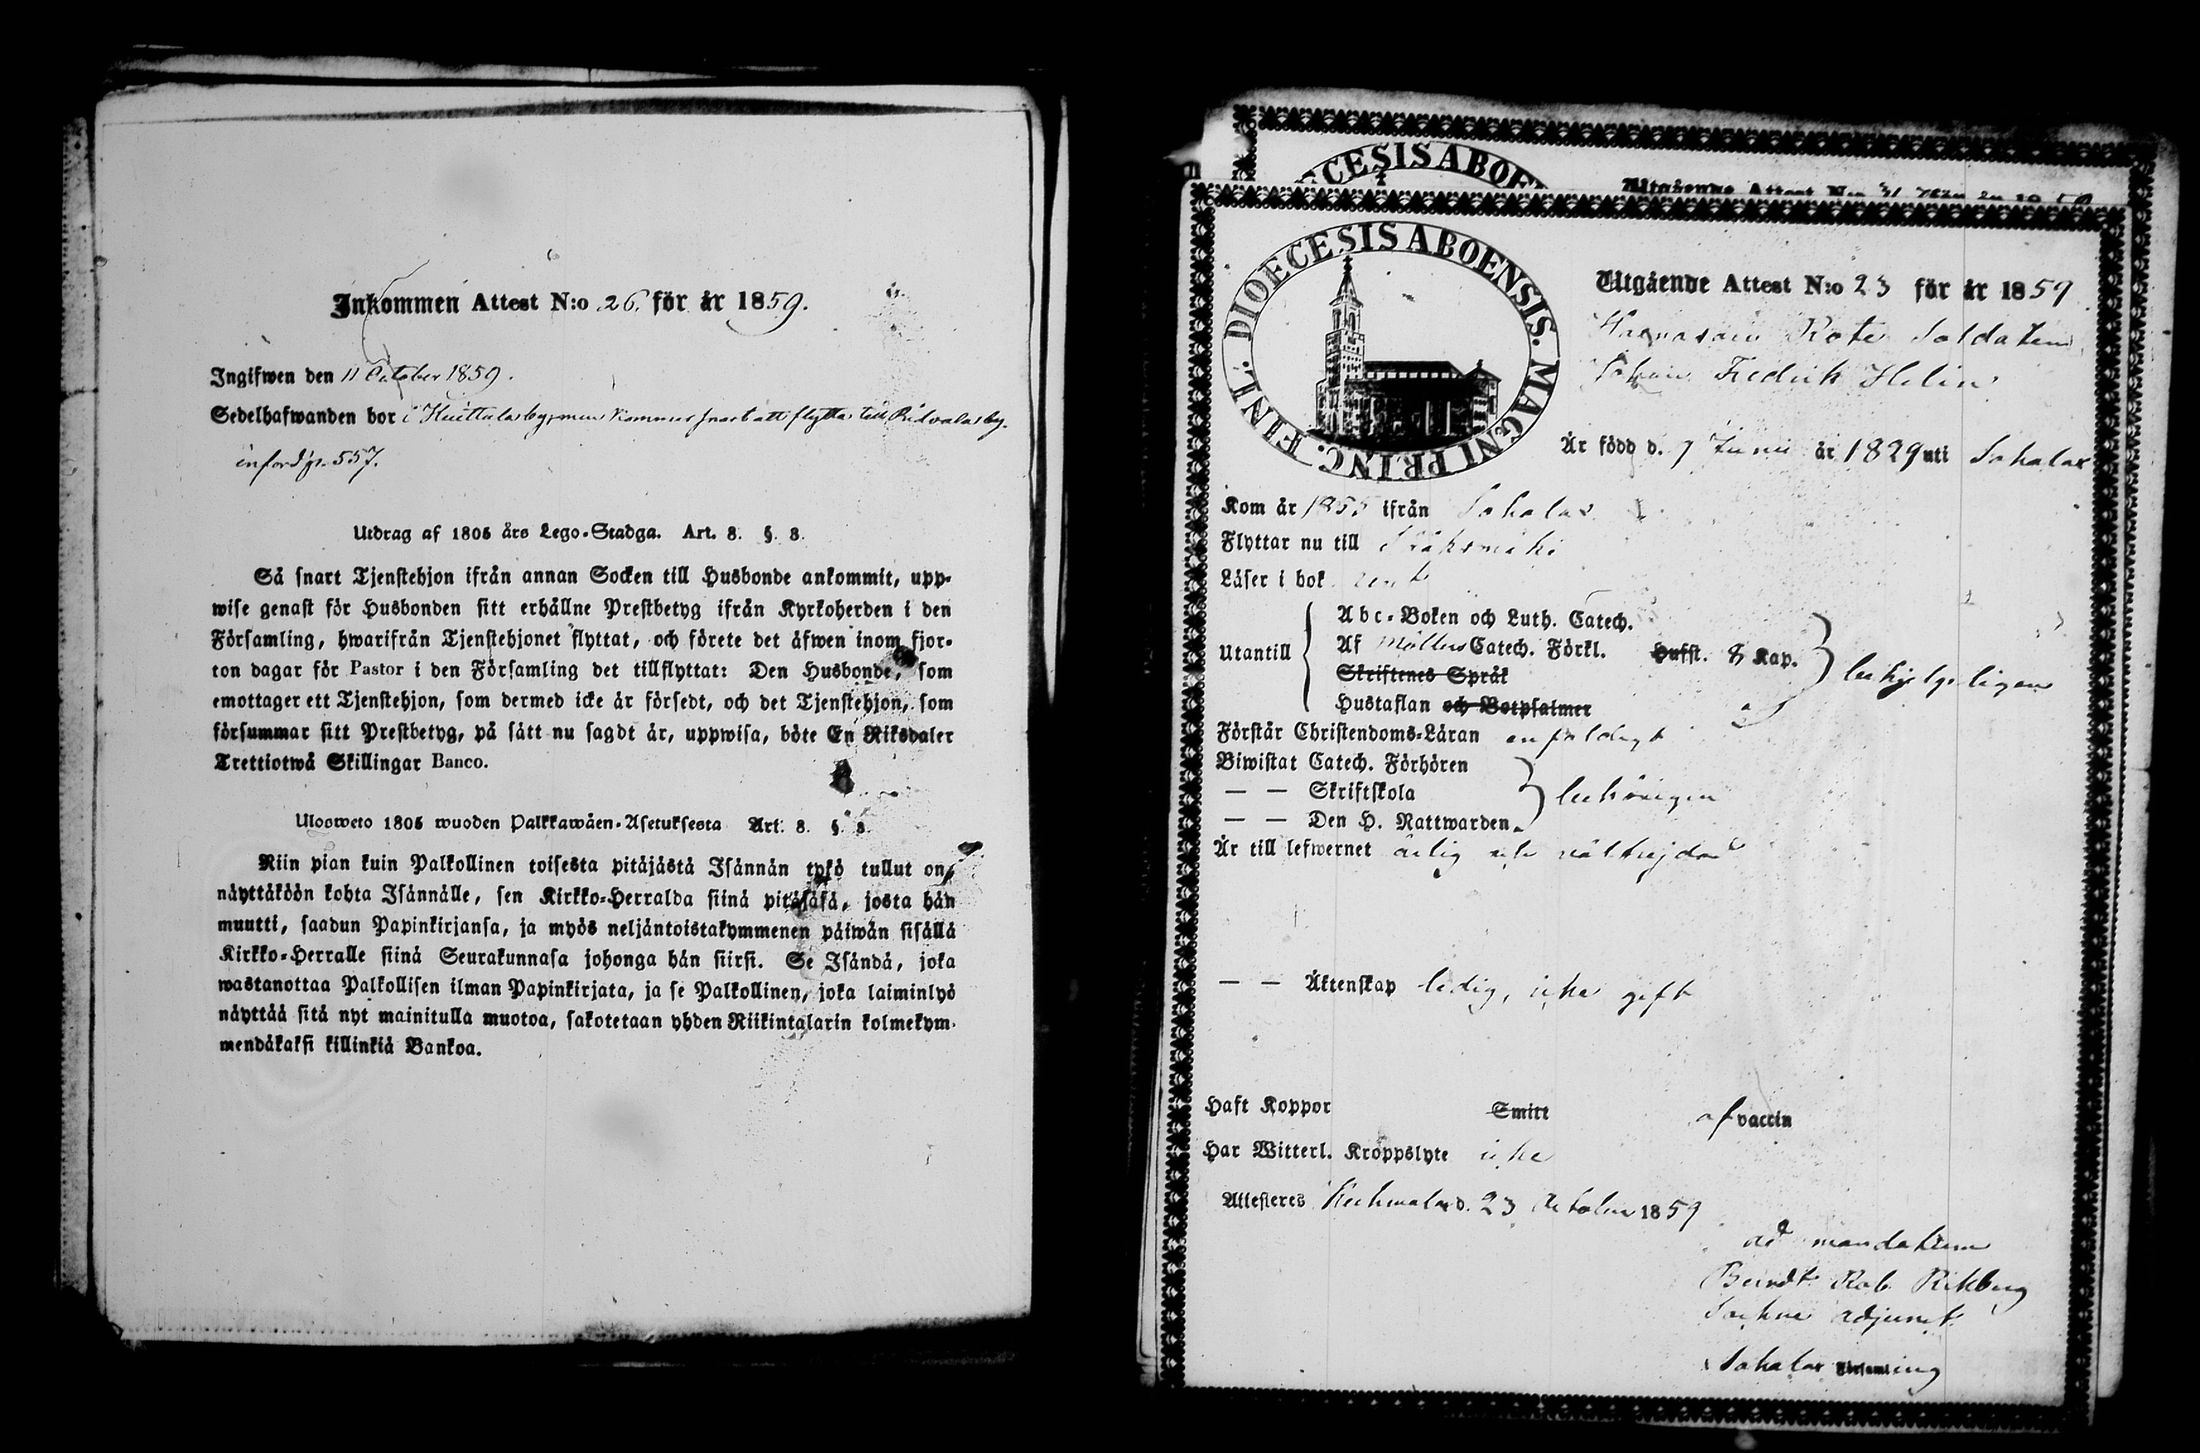 Inkommen Attest N:o 26. för år 1859.
Ingifwen den 11 October 1859.
Sedelhafwanden bor i Huittula by, men kommer snart att flytta till Ridvala by.
införd p. 557.
Utdrag af 1805 års Lego-Stadga. Art. 8. §. 8.
Så snart Tjenstehjon ifrån annan Socken till Husbonde ankommit, upp-
wise genast för Husbonden sitt erhållne Prestbetyg ifrån Kyrkoherden i den
Församling, hwarifrån Tjenstehjonet flyttat, och förete det äfwen inom fjor-
ton dagar för Pastor i den Församling det tillflyttat: Den Husbonde, som
emottager ett Tjenstehjon, som dermed icke är försedt, och det Tjenstehjon, som
försummar sitt Prestbetyg, på sätt nu sagdt är, uppwisa, böte En Riksdaler
Trettiotwå Skillingar Banco.
Ulosweto 1805 wuoden Palkkawäen-Asetuksesta Art. 8. §. 8.
Niin pian kuin Palkollinen toisesta pitäjästä Isännän tykö tullut on,
näyttäköön kohta Isännälle, sen Kirkko-Herralda siinä pitäjäsä, josta hän
muutti, saadun Papinkirjansa, ja myös neljäntoistakymmenen päiwän sisällä
Kirkko-Herralle siinä Seurakunnasa johonga hän siirsi. Se Isändä, joka
wastanottaa Palkollisen ilman Papinkirjata, ja se Palkollinen, joka laiminlyö
näyttää sitä nyt mainitulla muotoa, sakotetaan yhden Riikintalarin kolmekym-
mendäkaksi killinkiä Bankoa.
DIOECESIS ABOEN
Utgående Attest N:o 31 för år 1859
DIOECESIS ABOENSIS. MAGNI PRINC. FINL.
Utgående Attest N:o 23 för år 1859
Rote Soldaten
Johan Fredrik Helin
Är född d. 7 Junii år 1829 uti Sahalax
Kom år 1855 ifrån Sahalax
Flyttar nu till Sääksmäki
Läser i bok rent
Utantill
Abc-Boken och Luth. Catech.
Af Möllers Catech. Förkl. Hufst. 8 Kap.
Skriftenes Språk
Hustaflan och Botpsalmer
behjelpeligen
Förstår Christendoms-Läran enfaldigt
Biwistat Catech. Förhören
— — Skriftskola
— — Den H. Nattwarden
behörigen
Är till lefwernet ärlig och välfrejdad
— — Äktenskap ledig, icke gift
Haft Koppor Smitt af vaccin
Har Witterl. Kroppslyte icke
Attesteres Kuhmalax d. 23 October 1859
ad mandatum
Berndt Rob. Rikberg
Sockne adjunct
Sahalax Församling